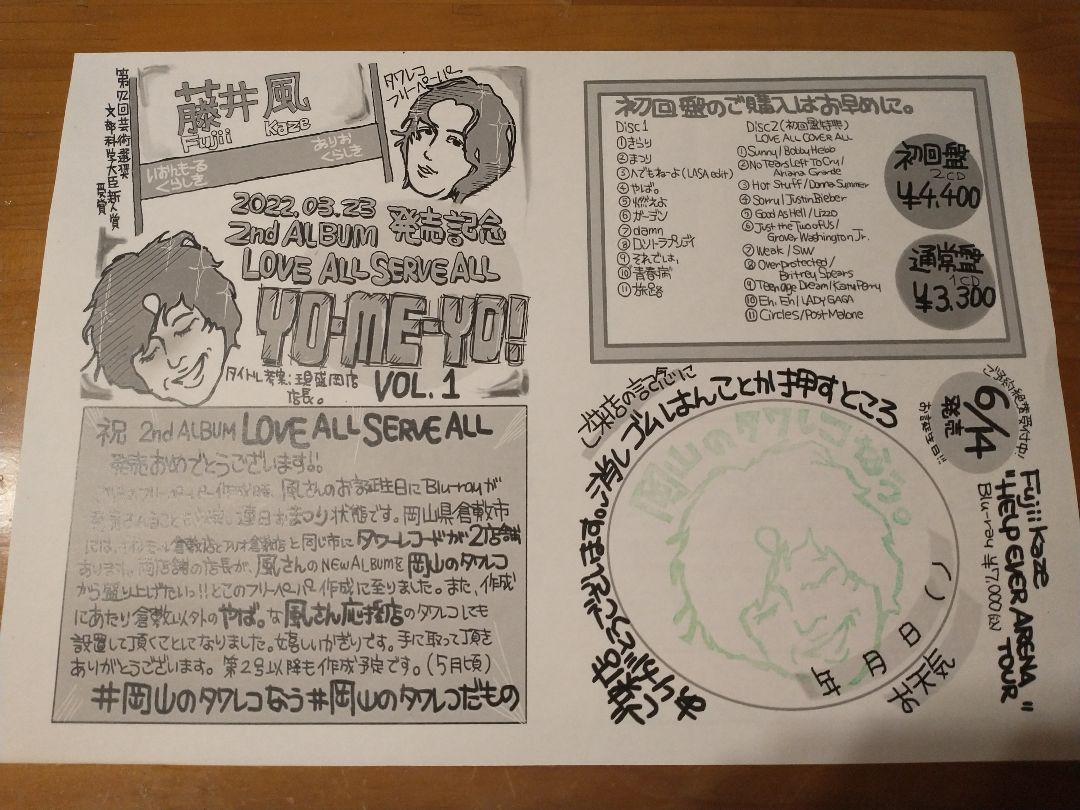 第72回芸術選奨
文部科学大臣新人賞
受賞
藤井 風
Fujii Kaze
タワレコ
フリーペーパー
いおんもーる
くらしき
ありお
くらしき
2022.03.23
2nd ALBUM 発売記念
LOVE ALL SERVE ALL
YO-ME-YO!
VOL.1
タイトル考案:現盛岡店
店長。
祝 2nd ALBUM LOVE ALL SERVE ALL
発売おめでとうございます!!
風さんのお誕生日にBlu-rayが
連日おまつり状態です。岡山県倉敷市
には、イオンモール倉敷店とアリオ倉敷店と同じ市にタワーレコードが2店舗
あります。両店舗の店長が、風さんのNEW ALBUMを岡山のタワレコ
から盛り上げたいっ!!とこのフリーペーパー作成に至りました。また、作成
にあたり倉敷以外のやば。な風さん応援店のタワレコにも
設置して頂くことになりました。嬉しいかぎりです。手に取って頂き
ありがとうございます。第2号以降も作成予定です。(5月頃)
#岡山のタワレコなう#岡山のタワレコだもの
初回盤のご購入はお早めに。
Disc1
①きらり
②まつり
③へでもねーよ(LASA edit)
④やば。
⑤燃えよ
⑥ガーデン
⑦damn
⑧ロンリーラプソディ
⑨それでは、
⑩青春病
⑪旅路
Disc2(初回盤特典)
LOVE ALL COVER ALL
①Sunny/Bobby Hebb
②No Tears Left To Cry/
Ariana Grande
③Hot Stuff/Donna Summer
④Sorry/Justin Bieber
⑤Good As Hell/Lizzo
⑥Just the Two of Us/
Grover Washington Jr.
⑦Weak/SWV
⑧Overprotected/
Britney Spears
⑨Teenage Dream/Katy Perry
⑩Eh, Eh/LADY GAGA
⑪Circles/Post Malone
初回盤
2CD
¥4,400
通常盤
1CD
¥3,300
ご予約絶賛受付中!
6/14
発売
お誕生日!!
Fujii Kaze
"HELP EVER ARENA
TOUR"
Blu-ray ¥7,000(込)
ゴムはんことか押すところ
岡山のタワレコなう。
年 月 日 ( )